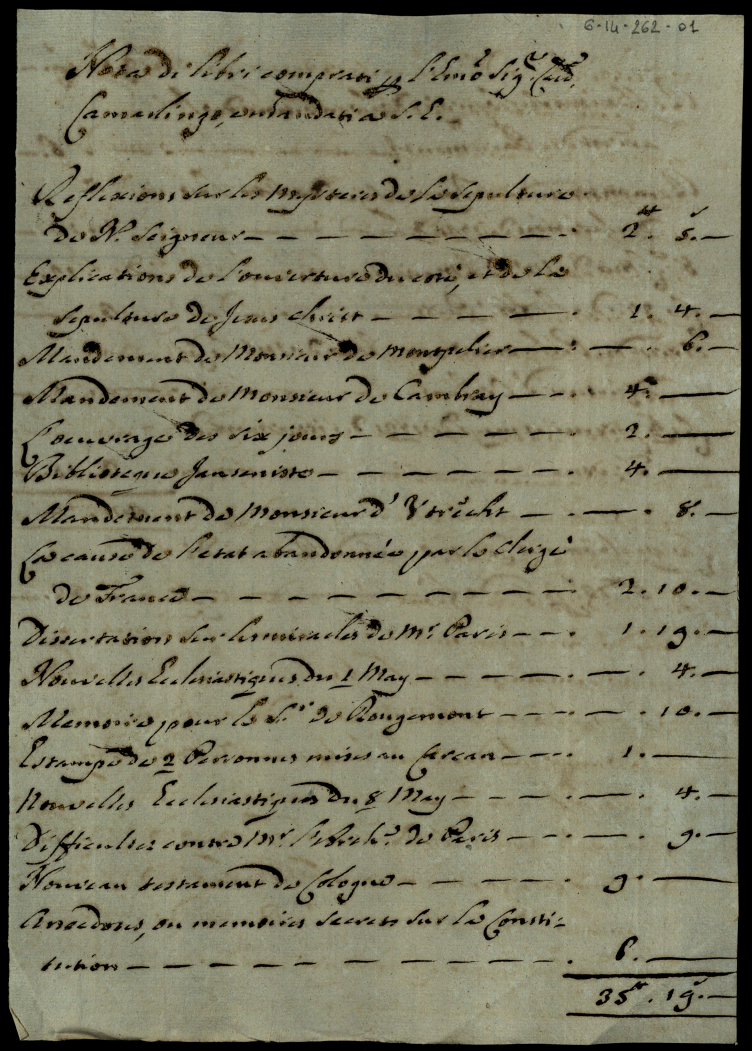 6-14-262-01
Nota di libri comprati p l'Emo Sigr Card.
Camerlingo, e mandati a S. E.
Reflexions sur les Mysteres de la sepulture
de N. Seigneur — — — 2.# 5.s —
Explications de l'ouverture du coté, et de la
sepulture de Jesus Christ — — — 1. 4. —
Mandement de Monsieur de Montpelier — — . — . 6. —
Mandement de Monsieur de Cambray — — . 4. —
L'oeuvrage des six jours — — — . 2. —
Biblioteque Janseniste — — — . 4. —
Mandement de Monsieur d' Vtrecht — . — . 8. —
La cause de l'etat abandonnée par le Clergé
de France — — — 2. 10. —
Dissertations sur les miracles de Mr. Paris — — . 1. 19. —
Nouvelles Ecclesiastiques du 1 May — — — . — . 4. —
Memoire pour le Sr. de Rougemont — — — . — . 10. —
Estampe de 2 Personnes mises au Carcan — — . 1. —
Nouvelles Ecclesiastiques du 8 May — — — . — . 4. —
Difficultez contre Mr. l'Arch. de Paris — — . — . 9. —
Nouveau testament de Cologne — — — . 9. —
Anecdotes, ou memoires secrets sur la Consti=
tution — — — . 6. —
35.# 19.s —